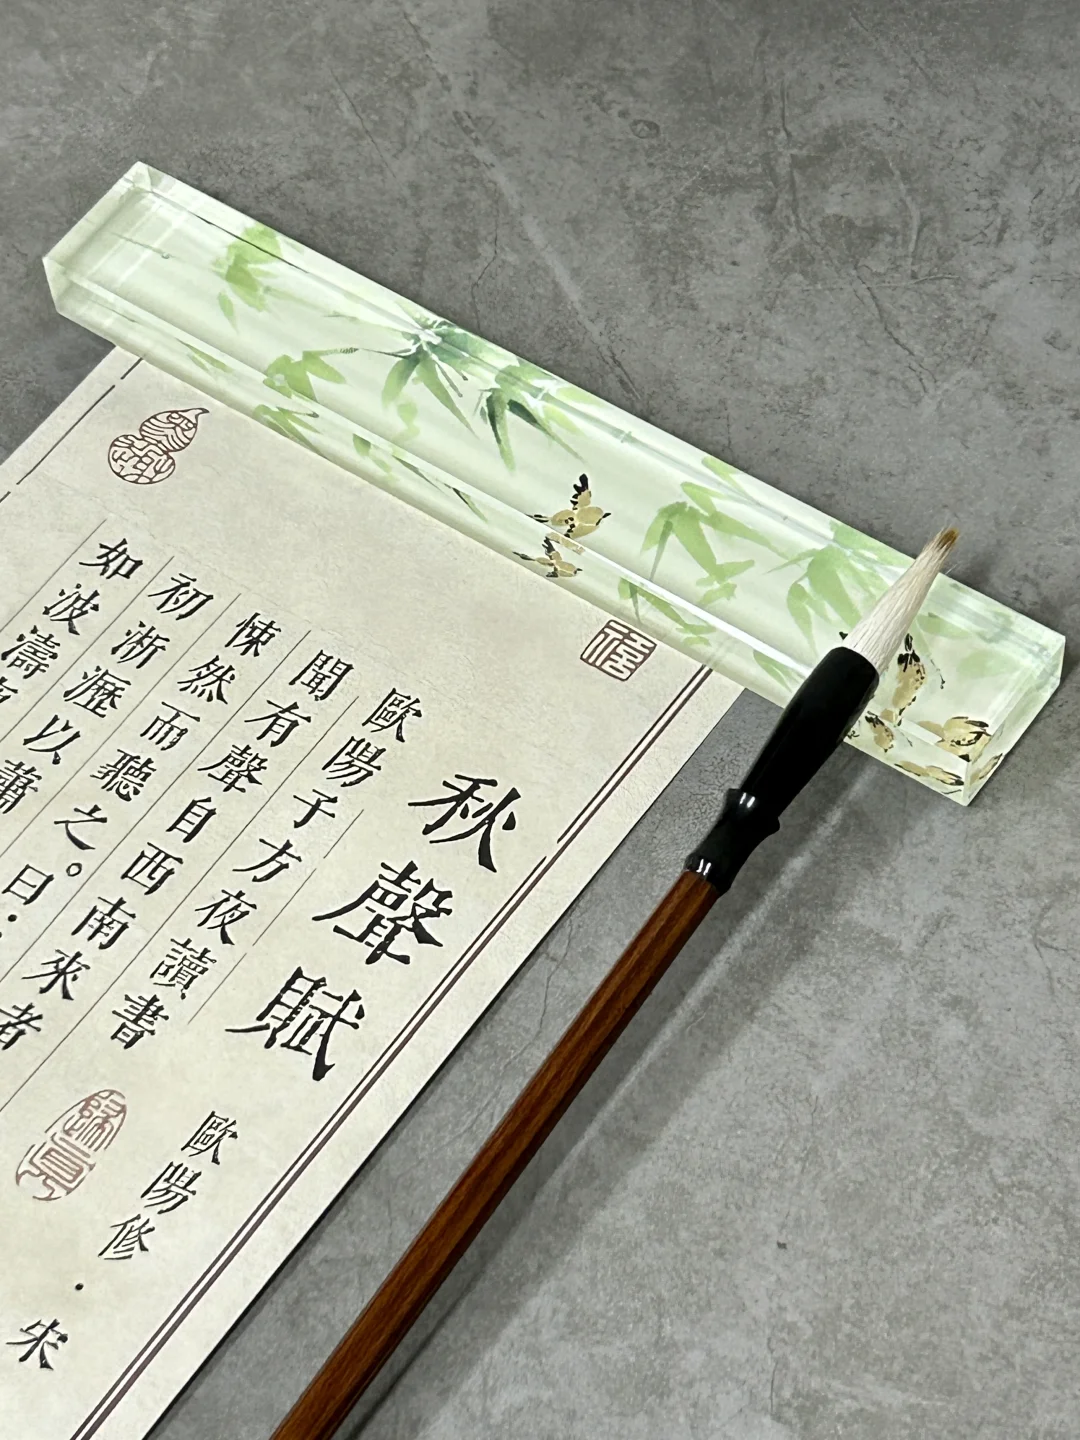 秋聲賦
歐陽修·宋
歐陽子方夜讀書
聞有聲自西南來者
悚然而聽之。曰:
初淅瀝以蕭
如波濤